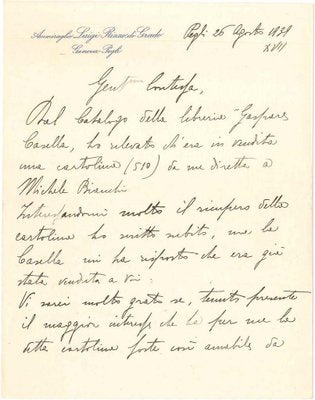 Ammiraglio Luigi Rizzo di Grado
Genova-Pegli
Pegli 26 Agosto 1939
XVII
Gent.ma Contessa,
Dal Catalogo della libreria "Gaspare
Casella, ho rilevato ch'era in vendita
una cartolina (510) da me diretta a
Michele Bianchi
Interessandomi molto il ricupero della
cartolina ho scritto subito, ma la
Casella mi ha risposto che era già
stata venduta a Voi.
Vi sarei molto grato se, tenuto presente
il maggior interesse che ha per me la
detta cartolina foste così amabile da